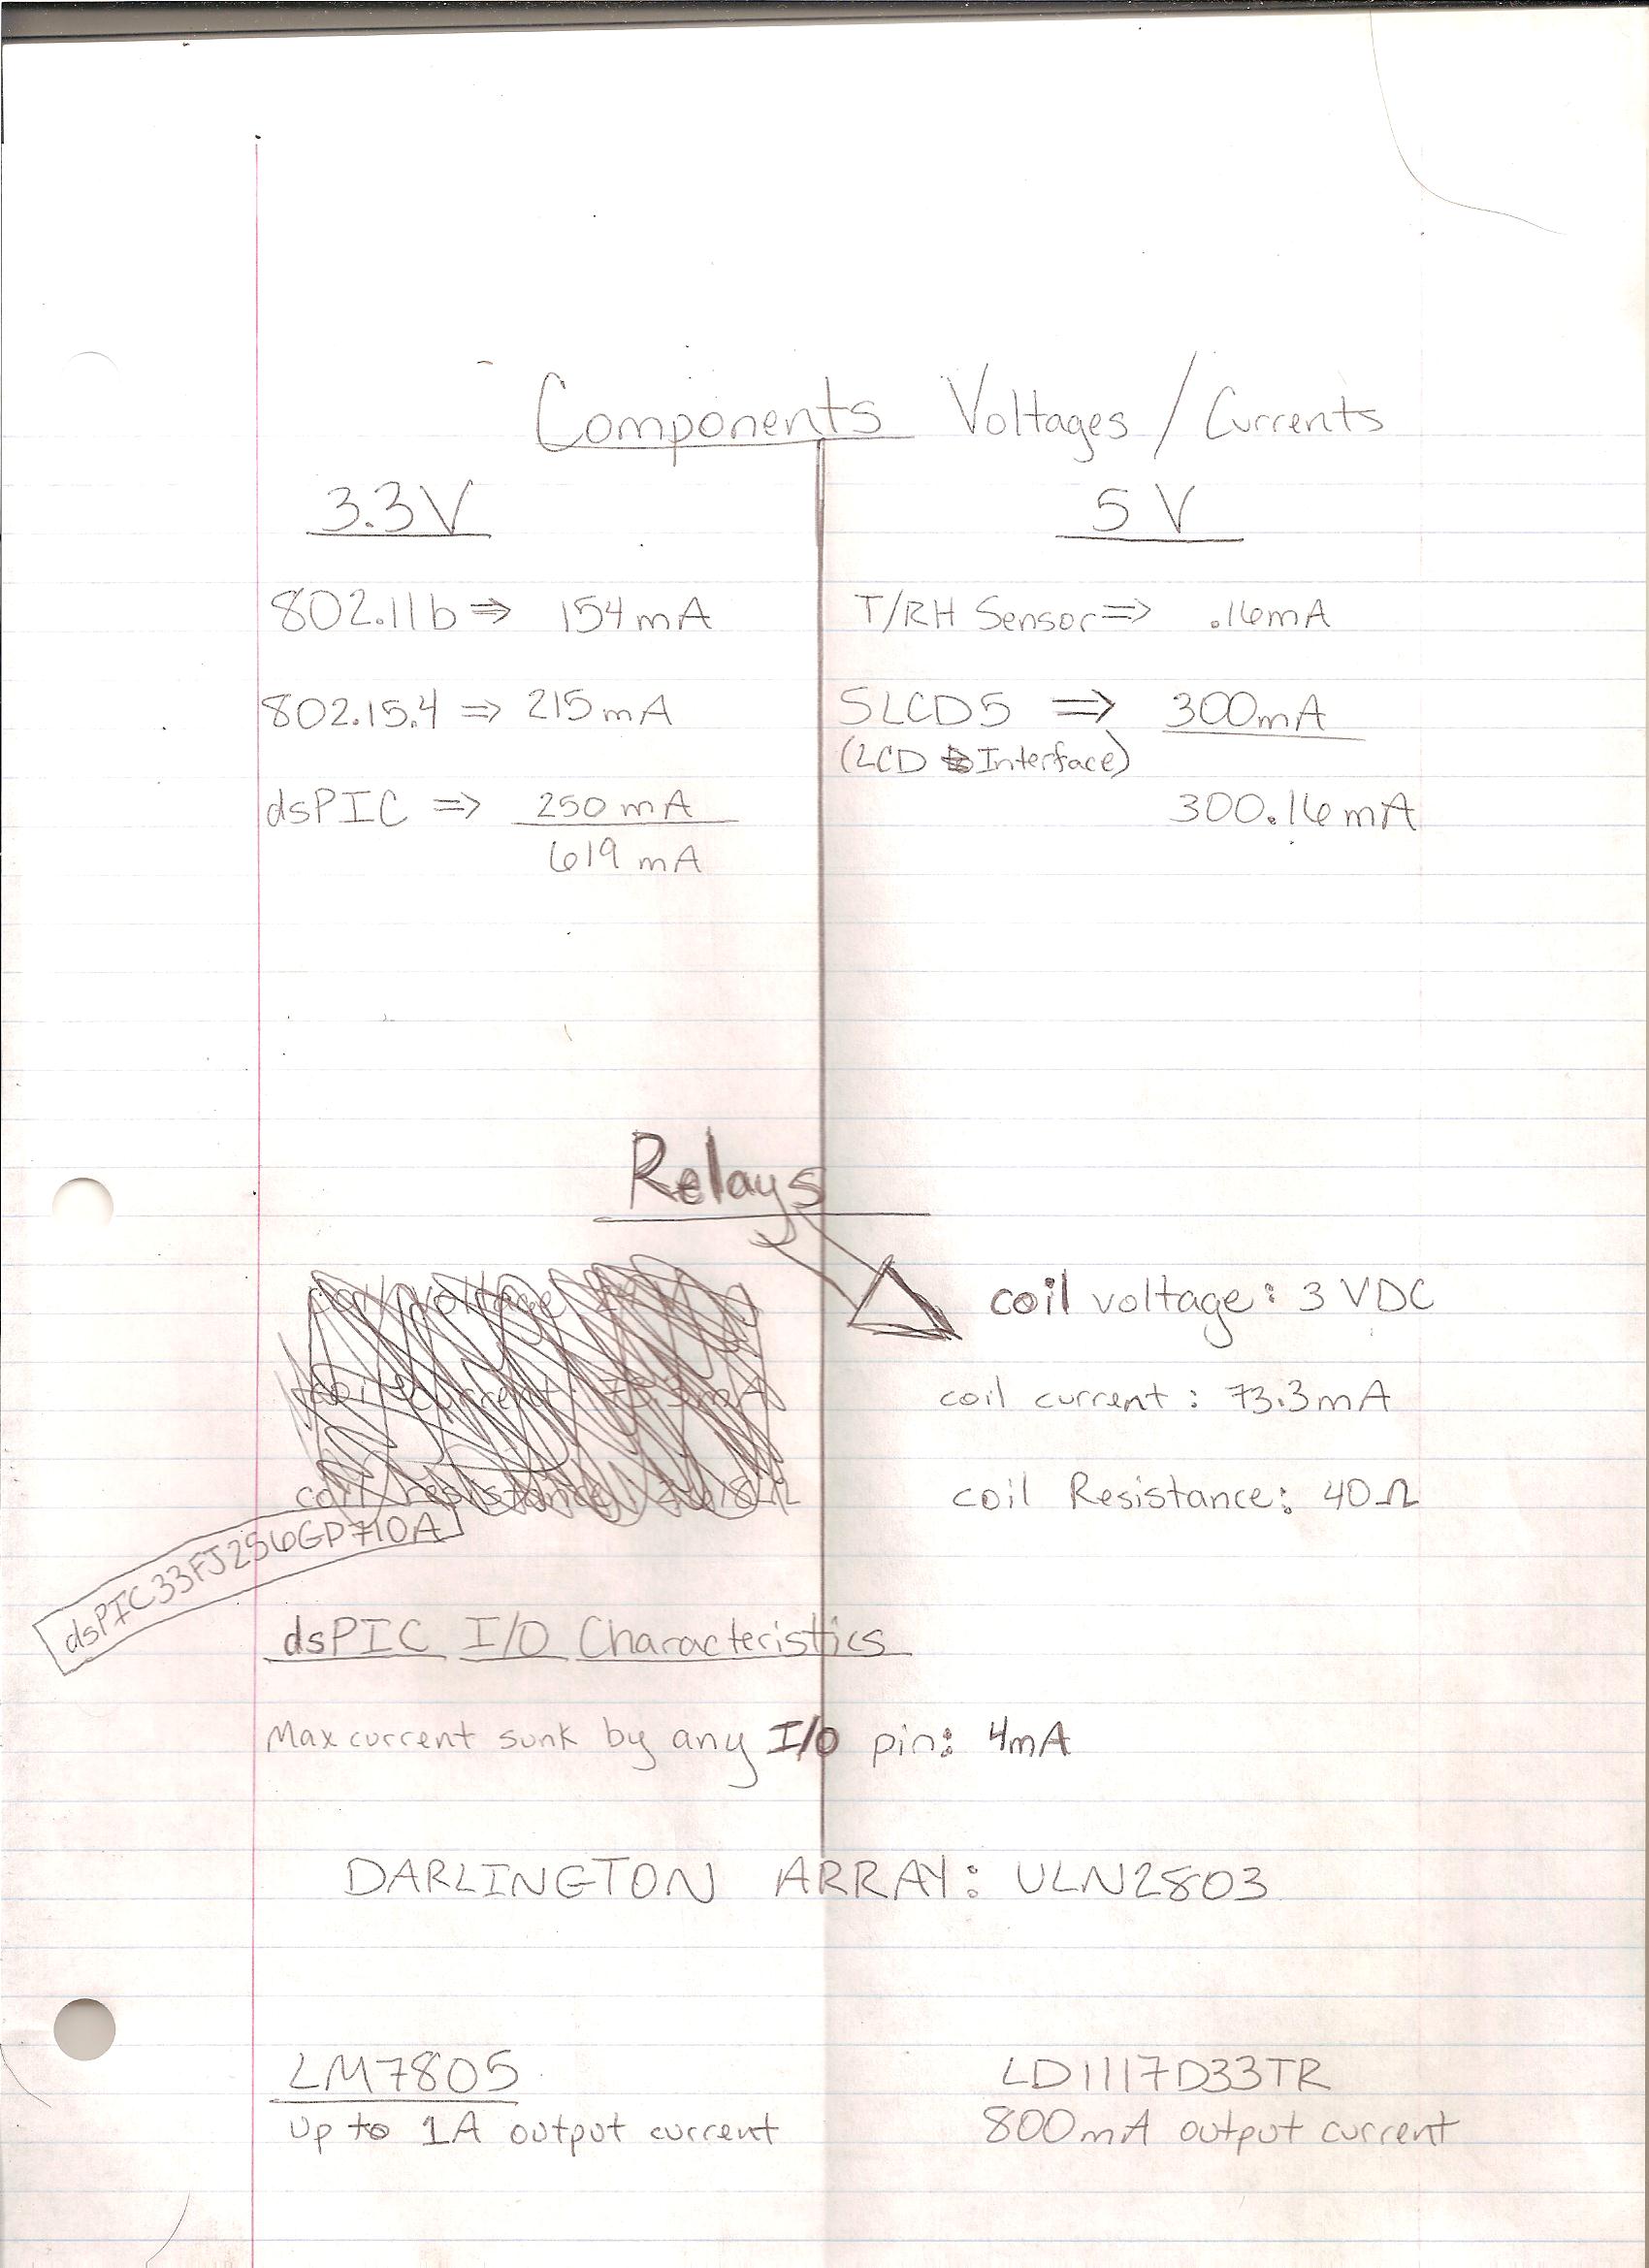 Components Voltages / Currents
3.3V
802.11b ⇒ 154mA
802.15.4 ⇒ 215mA
dsPIC ⇒ 250mA
619 mA
5 V
T/RH Sensor ⇒ .16mA
SLCD5 ⇒ 300mA
(LCD Interface)
300.16mA
Relays
coil voltage
coil current: 73.3mA
coil resistance:
coil voltage: 3 VDC
coil current: 73.3mA
coil Resistance: 40Ω
dsPIC33FJ256GP710A
dsPIC I/O Characteristics
Max current sunk by any I/O pin: 4mA
DARLINGTON ARRAY: ULN2803
LM7805
Up to 1A output current
LD1117D33TR
800mA output current